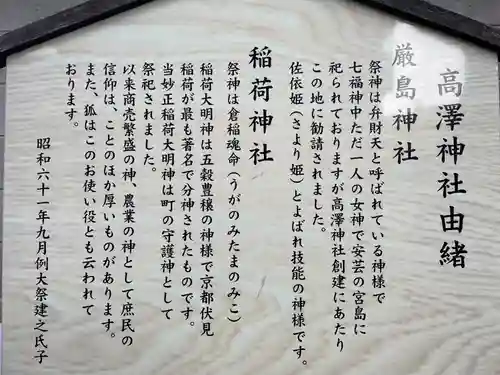 高澤神社由緒
厳島神社
祭神は弁財天と呼ばれている神様で
七福神中ただ一人の女神で安芸の宮島に
祀られておりますが高澤神社創建にあたり
この地に勧請されました。
佐依姫（さより姫）とよばれ技能の神様です。
稲荷神社
祭神は倉稲魂命（うがのみたまのみこ）
稲荷大明神は五穀豊穣の神様で京都伏見
稲荷が最も著名で分神されたものです。
当妙正稲荷大明神は町の守護神として
祭祀されました。
以来商売繁盛の神、農業の神として庶民の
信仰は、ことのほか厚いものがあります。
また、狐はこのお使い役とも云われて
おります。
昭和六十一年九月例大祭建之氏子